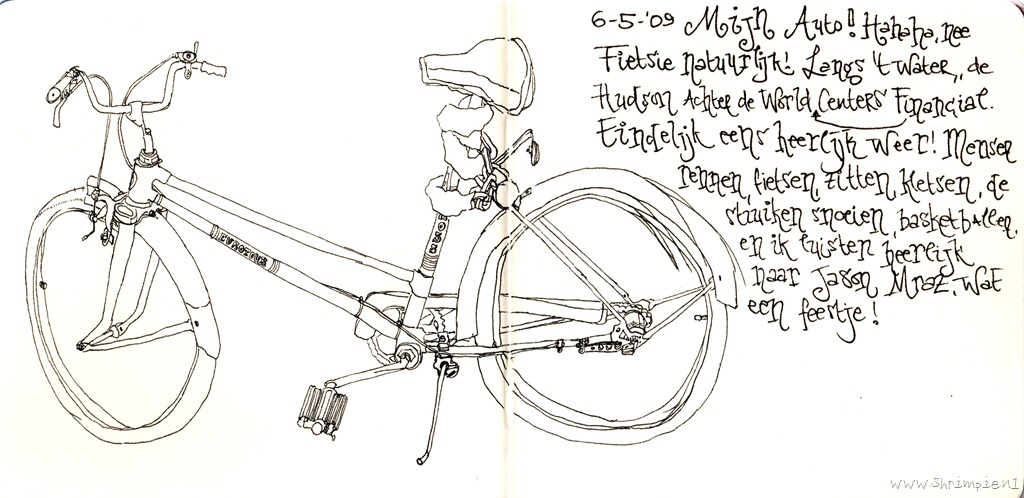 6-5-'09 Mijn Auto! Hahaha, nee
Fietsie natuurlijk! Langs 't water, de
Hudson Achter de World Centers Financial.
Eindelijk eens heerlijk weer! Mensen
rennen, fietsen, zitten, kletsen, de
struiken snoeien, basketballen,
en ik luister heerlijk
naar Jason Mraz. Wat
een feestje!
www.Shrimpien1